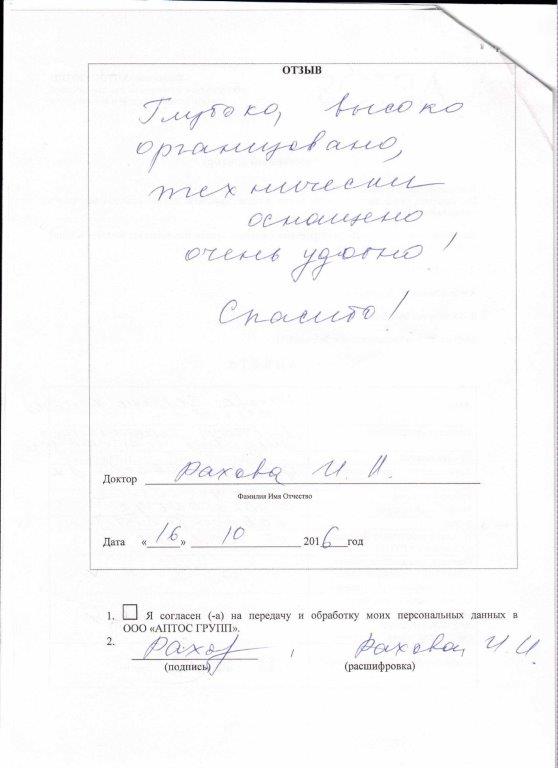 ОТЗЫВ
Глубоко, высоко
организовано,
технически
оснащено
очень удобно!
Спасибо!
Доктор Рахова И. И.
Фамилия Имя Отчество
Дата «16» 10 2016 год
1. Я согласен (-а) на передачу и обработку моих персональных данных в
ООО «АПТОС ГРУПП».
2. Рахов , Рахова И. И.
(подпись) (расшифровка)